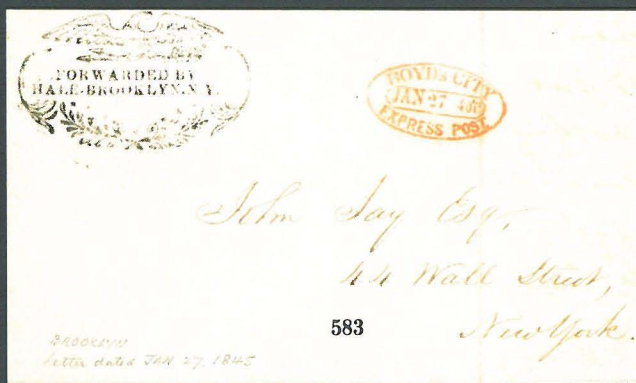 FORWARDED BY
HALE-BROOKLYN.N.Y.
BOYD'S CITY
JAN 27
EXPRESS POST.
John Jay Esq,
44 Wall Street,
New York.
583
BROOKLYN
letter dated JAN 27, 1845